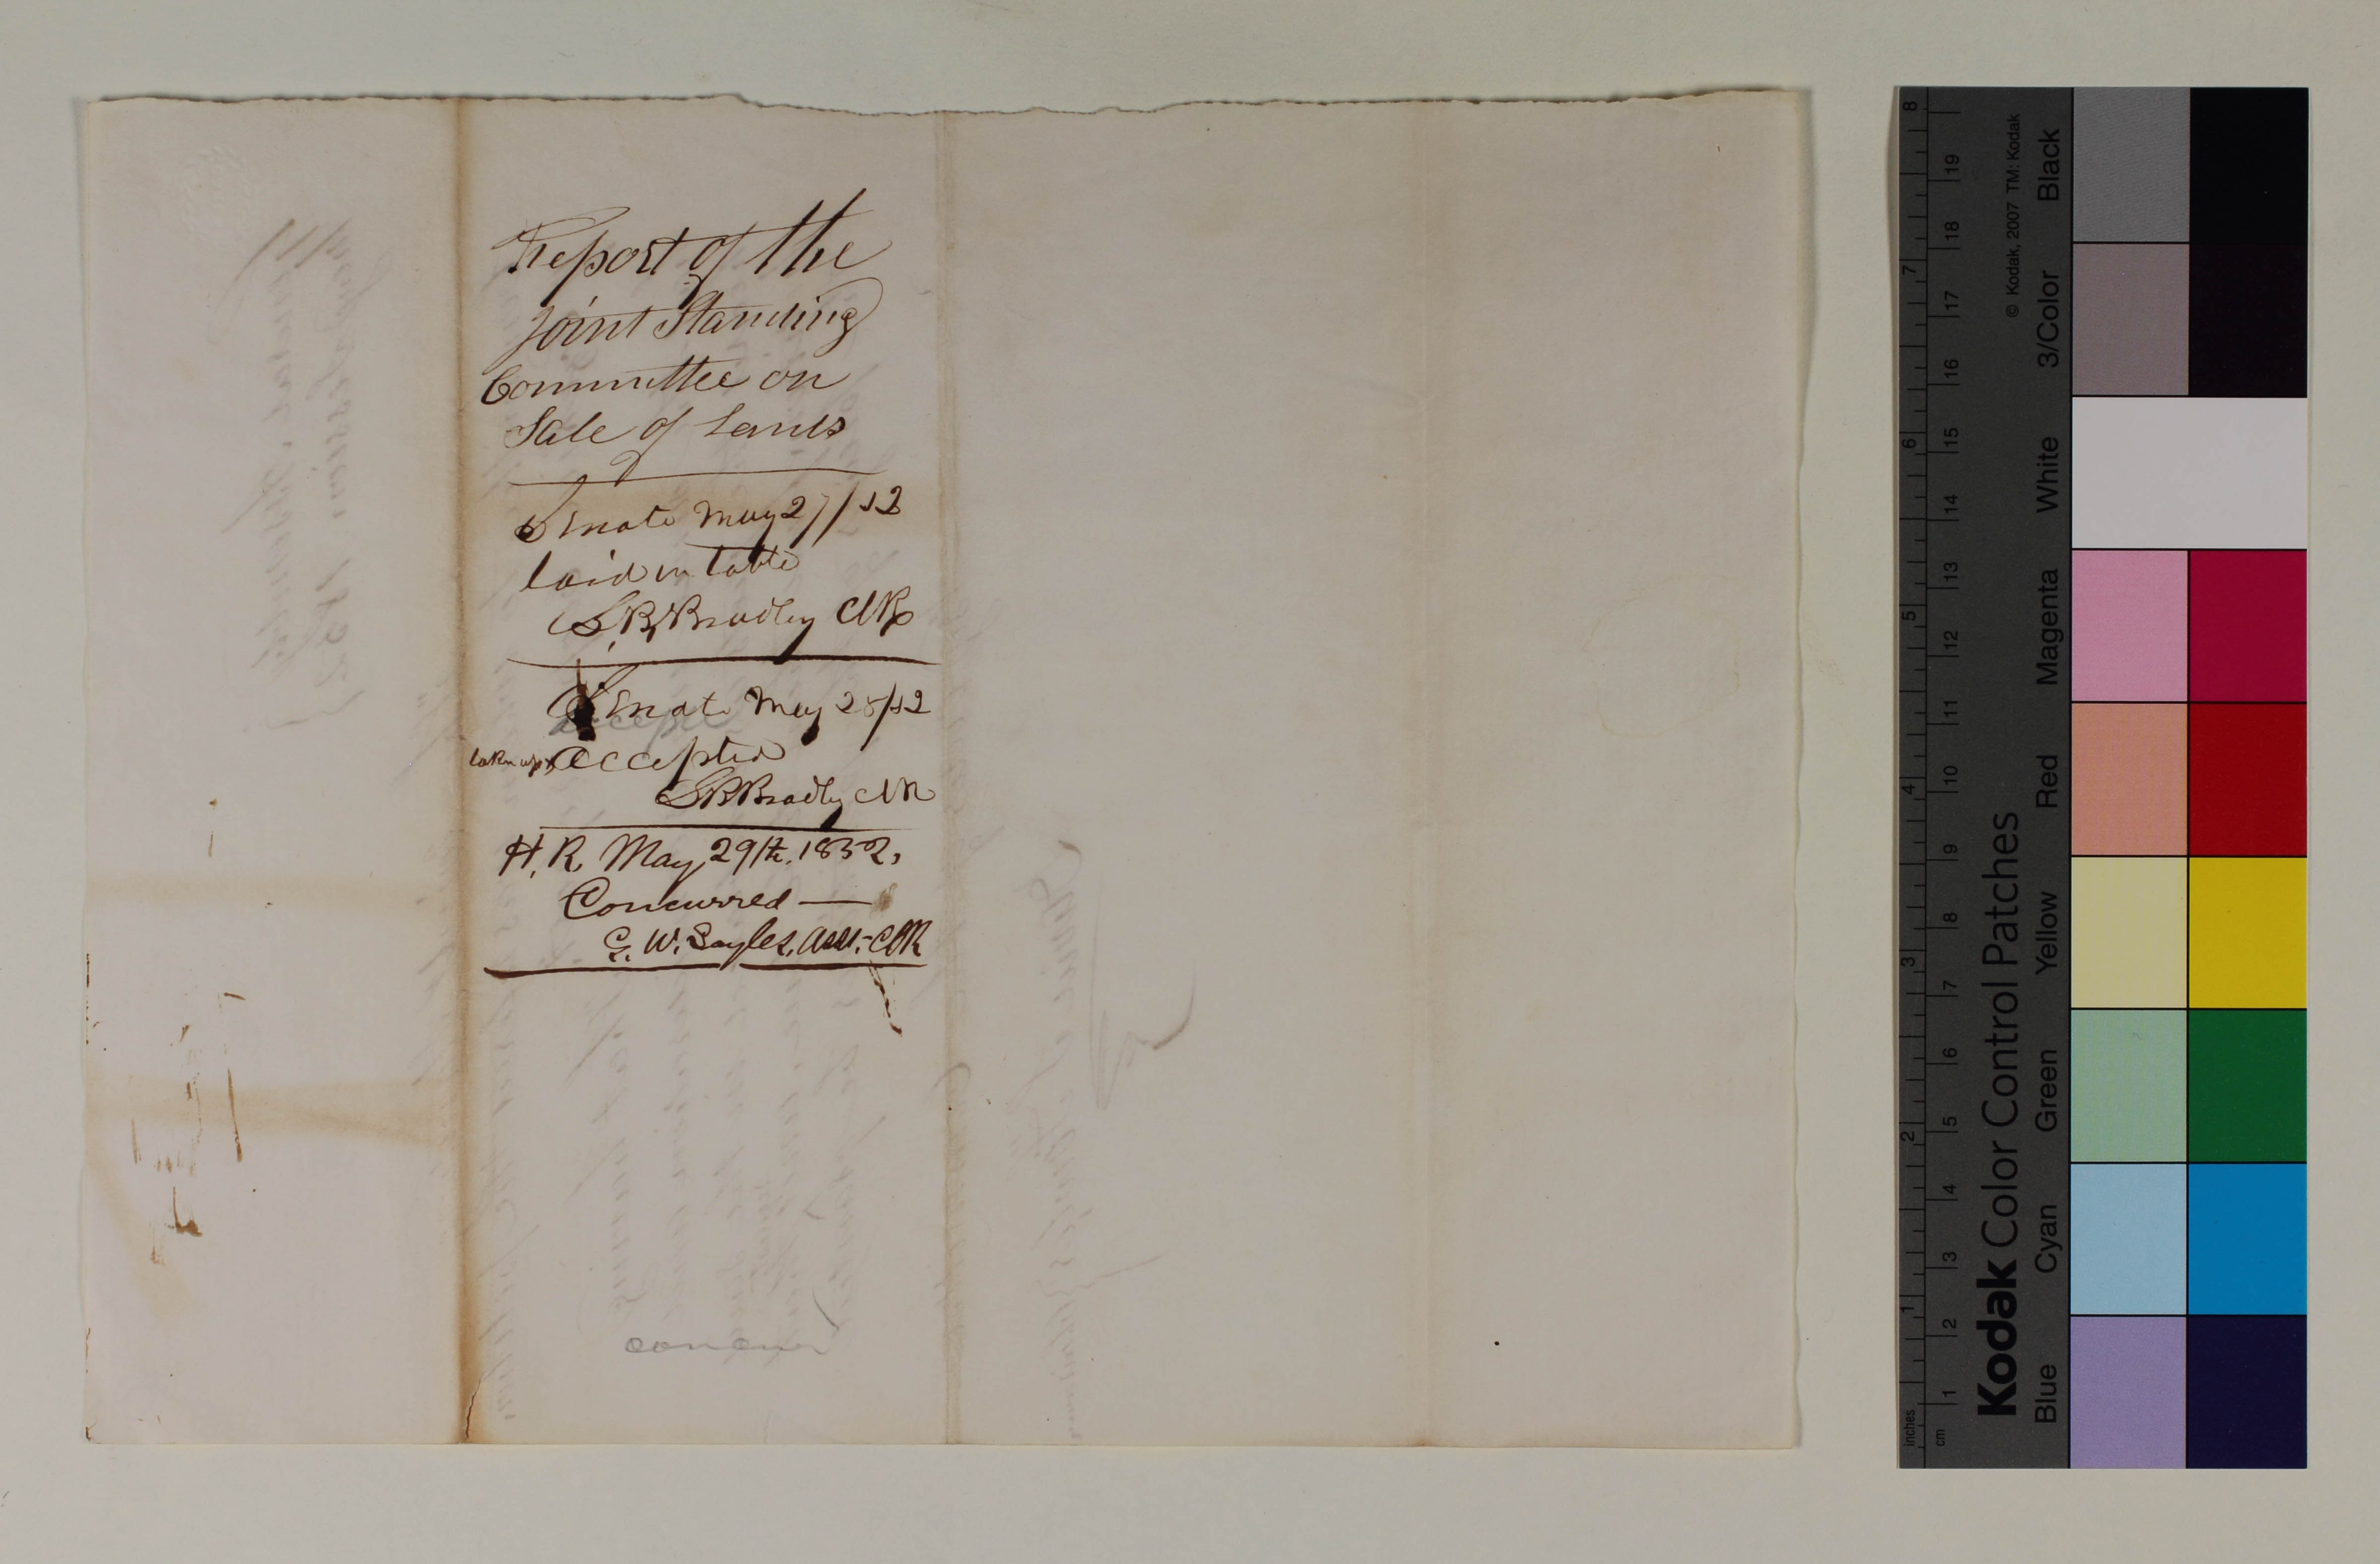 Report of the
Joint Standing
Committee on
Sale of Lands
Senate May 27/52
laid on table
S. B. Bradley Clk
Senate May 28/52
accept
taken up & accepted
S B Bradley Clk
H. R. May 29th. 1852,
Concurred —
G. W. Sayles, Asst. Clk
concur
Kodak Color Control Patches
© Kodak, 2007 TM: Kodak
Blue Cyan Green Yellow Red Magenta White 3/Color Black
inches 1 2 3 4 5 6 7 8
cm 1 2 3 4 5 6 7 8 9 10 11 12 13 14 15 16 17 18 19